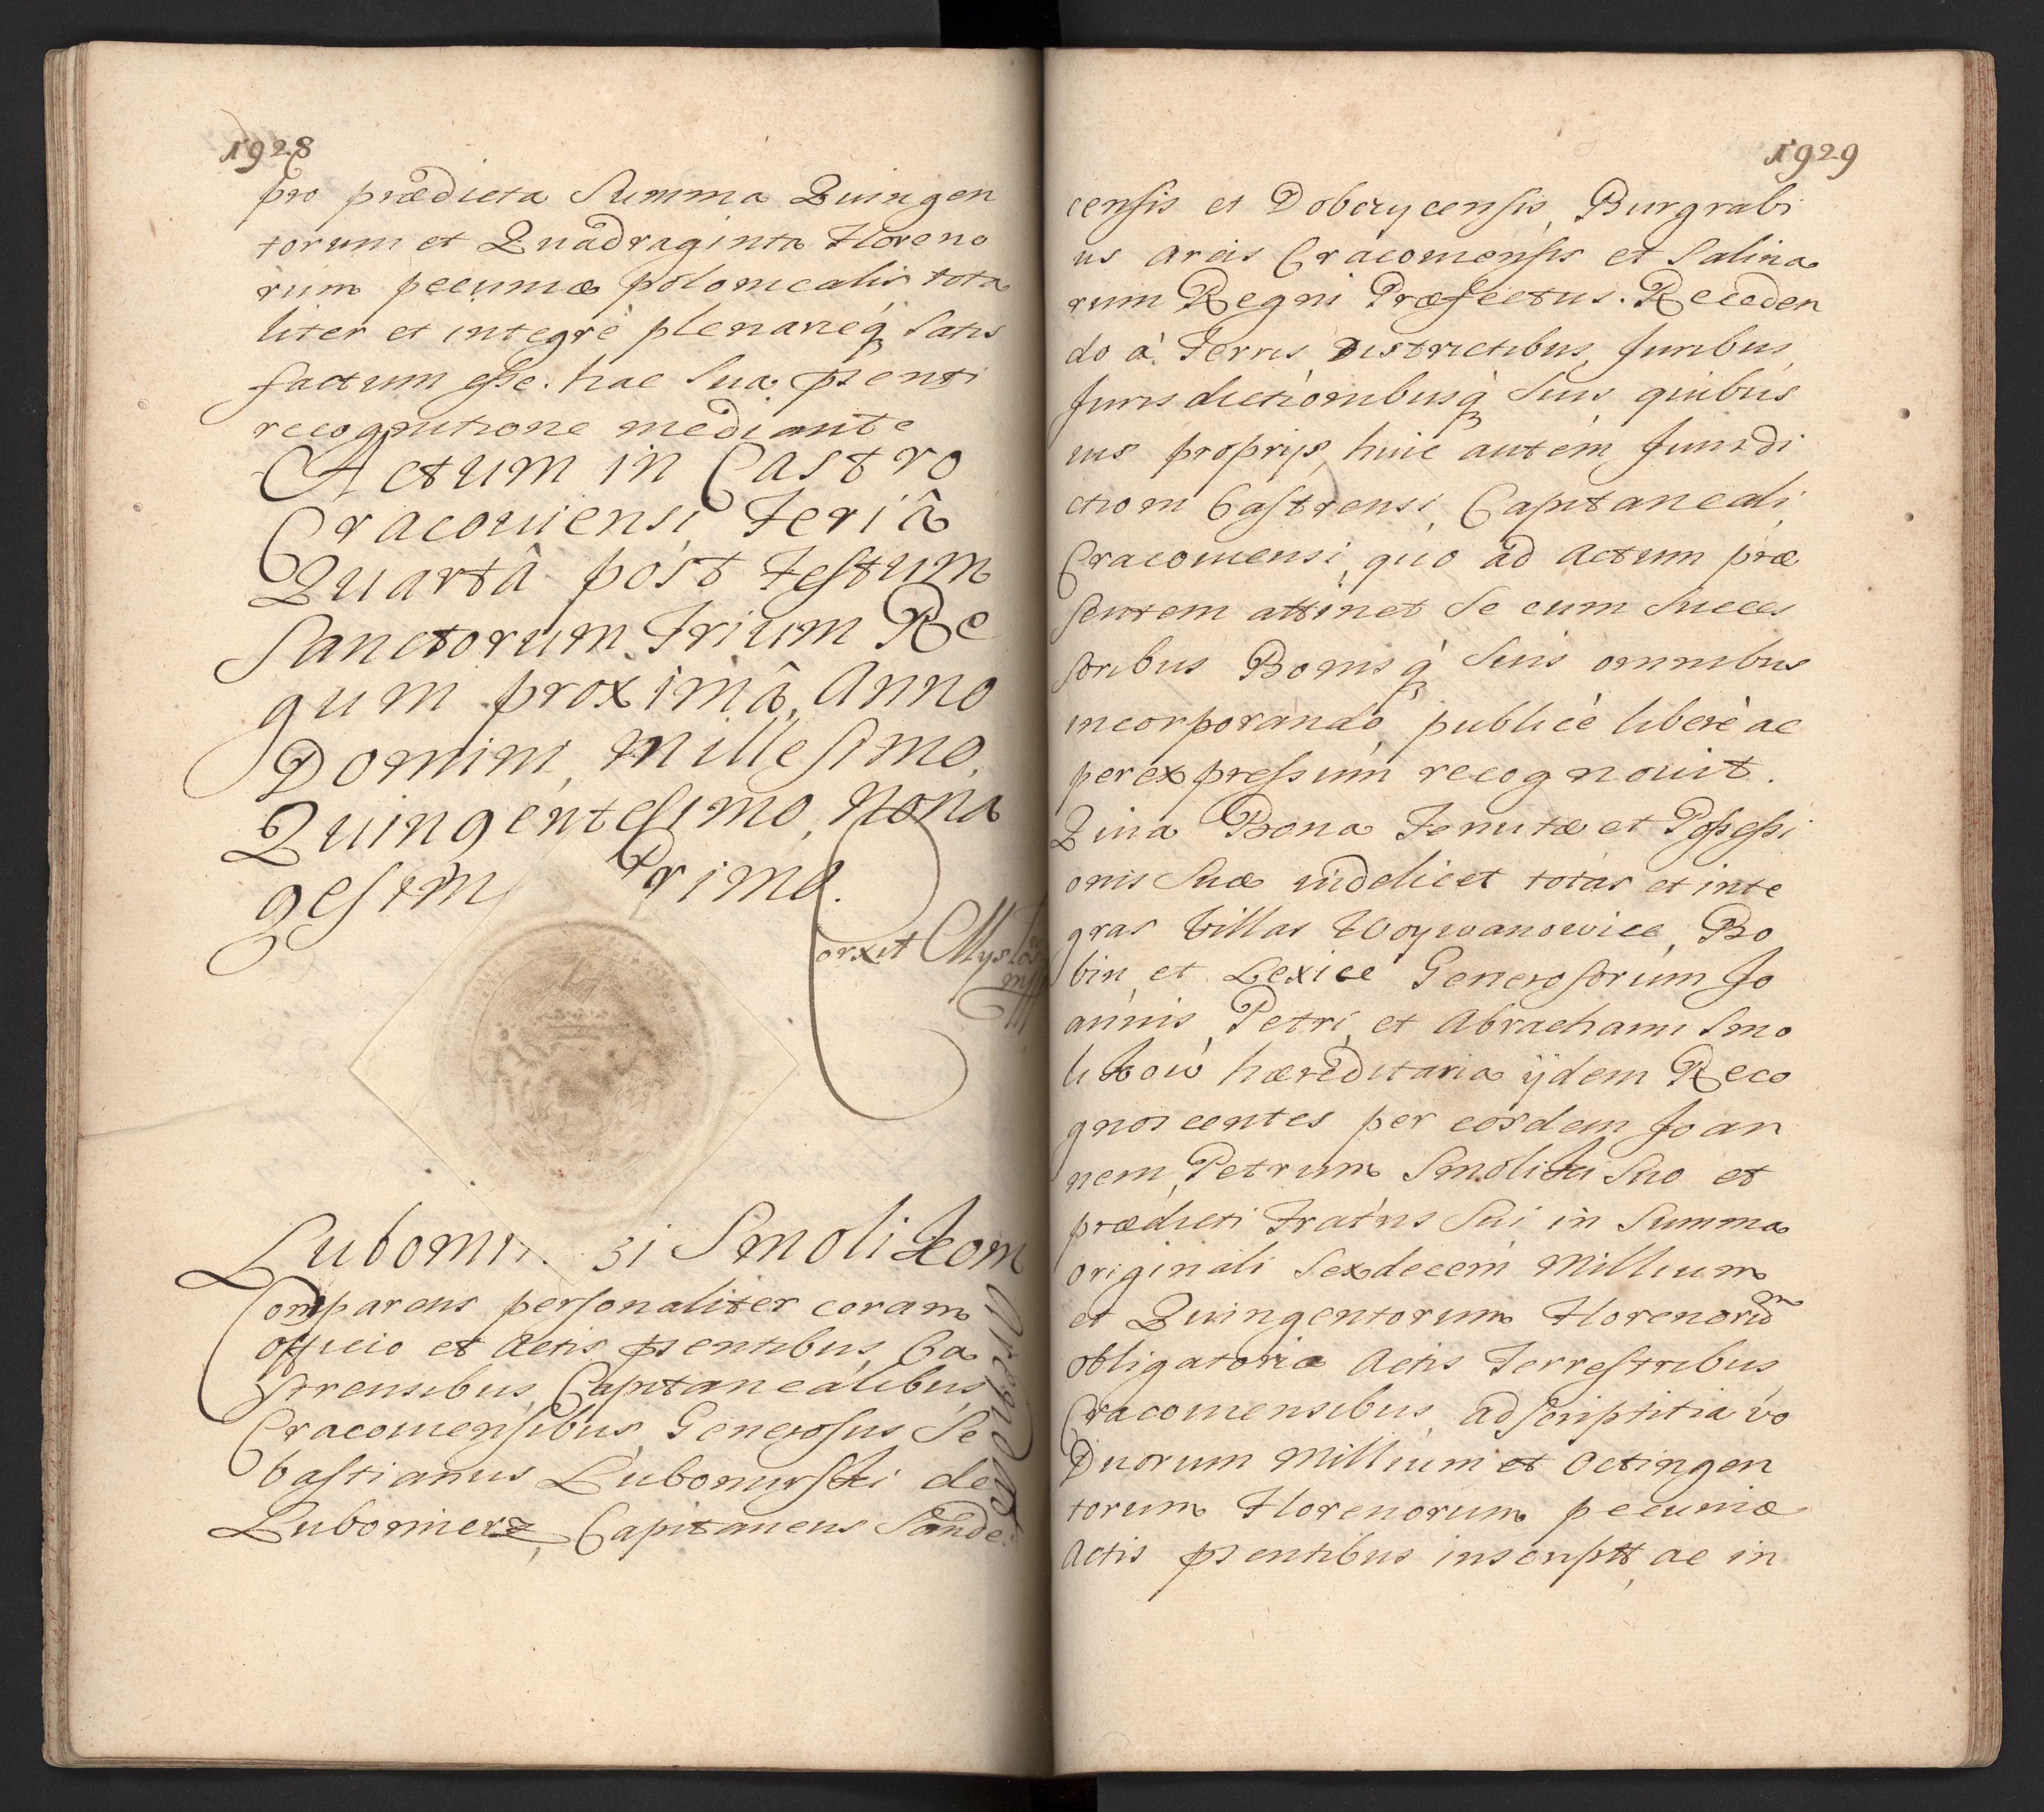 1928
pro prædicta Summa Quingen
torum et Quadraginta Floreno
rum pecuniæ polonicalis tota
liter et integrè plenarieq́ Satis
factum eſse. hac Sua pśenti
recognitione mediante
Actum in Castro
Cracouiensi Feriâ
Quartâ post Feſtum
Sanctorum Trium Re
gum proximâ, Anno
Domini, Milleſimo,
Quingenteſimo, Nona
geſim Primo.
orxit Mys
Lubomi si Smolikom
Comparens perſonaliter coram
officio et Actis pśentibus Ca
strensibus, Capitanealibus,
Cracouienſibus, Generoſus Se
baſtianus Lubomirſki de
Lubomierz, Capitaneus Sande
1929
cenſis et Dobczycenſis, Burgrabi
us arcis Cracouienſis et Salina
rum Regni Præfectus. Receden
do à Terris Districtibus, Juribus,
Jurisdictionibusq́ Suis quibus
uis proprijs, huic autem Jurisdi
ctioni Caſtrensi, Capitaneali,
Cracouiensi, quo ad Actum præ
ſentem attinet Se cum Succeſ
ſoribus Bonisq́ Suis omnibus
incorporando, publicè liberè ac
per expreſsum recognouit.
Quia Bona Tenutæ et Poſseſsi
onis Suæ videlicet totas et inte
gras Villas Woywanowice, Bo
bin, et Lexice Generoſorum Jo
annis, Petri, et Abrachami Smo
likow hæreditaria ijdem Reco
gnoscentes per eosdem Joan
nem, Petrum Smoliki Suo et
prædicti Fratris Sui in Summa
originali Sexdecem Millium
et Quingentorum Florenorum
obligatoria Actis Terreſtribus
Cracouiensibus, adſcriptitia vo
Duorum Millium et Octingen
torum Florenorum pecuniæ
Actis pśentibus inscriptt, ac in